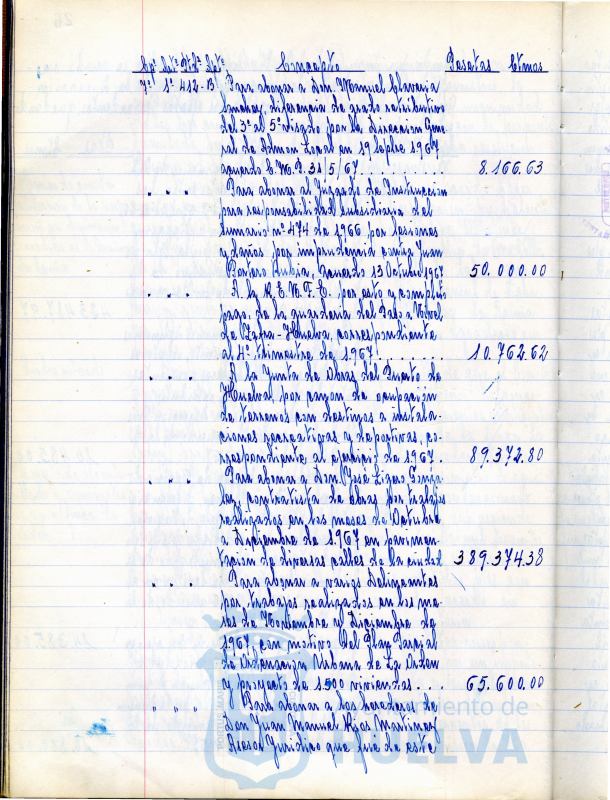 Cpº Artº Ptdª Sptº Concepto Pesetas Ctmos
7º 1º 412-B Para abonar a Don Manuel Clavaria
diferencia de grado retributivo
del 3º al 5º visado por la Dirección Gene
ral de Admon Local en 19 Sepbre 1967
acuerdo C.M.P. 31/5/67 .......... 8.166.63
" " " Para abonar al Juzgado de Instruccion
para responsabilidad subsidiaria del
sumario nº 474 de 1966 por lesiones
y daños por imprudencia contra Juan
Rubia, acuerdo 13 Octubre 1967 50.000.00
" " " A la R.E.N.F.E. por esto y completo
pago, de la guarderia del Paso a Nivel
de Zafra-Huelva, correspondiente
al 4º trimestre de 1967 ........ 10.762.62
" " " A la Junta de Obras del Puerto de
Huelva, por canon de ocupación
de terrenos con destinos a instala-
ciones recreativas y deportivas, co-
rrespondiente al ejercicio de 1967. 89.372.80
" " " Para abonar a Don José Ligero Gonzá
lez, contratista de obras por trabajos
realizados en los meses de Octubre
a Diciembre de 1967 en pavimen-
tación de diversas calles de la ciudad 389.374.38
" " " Para abonar a varios Delineantes
por trabajos realizados en los me-
ses de Noviembre y Diciembre de
1967, con motivo del Plan Parcial
de Ordenación Urbana de La Orden
y proyecto de 1.500 viviendas ... 65.600.00
" " " Para abonar a los herederos de
Don Juan Manuel Rojas Martinez
Asesor Juridico que fue de este
Ayuntamiento de
HUELVA